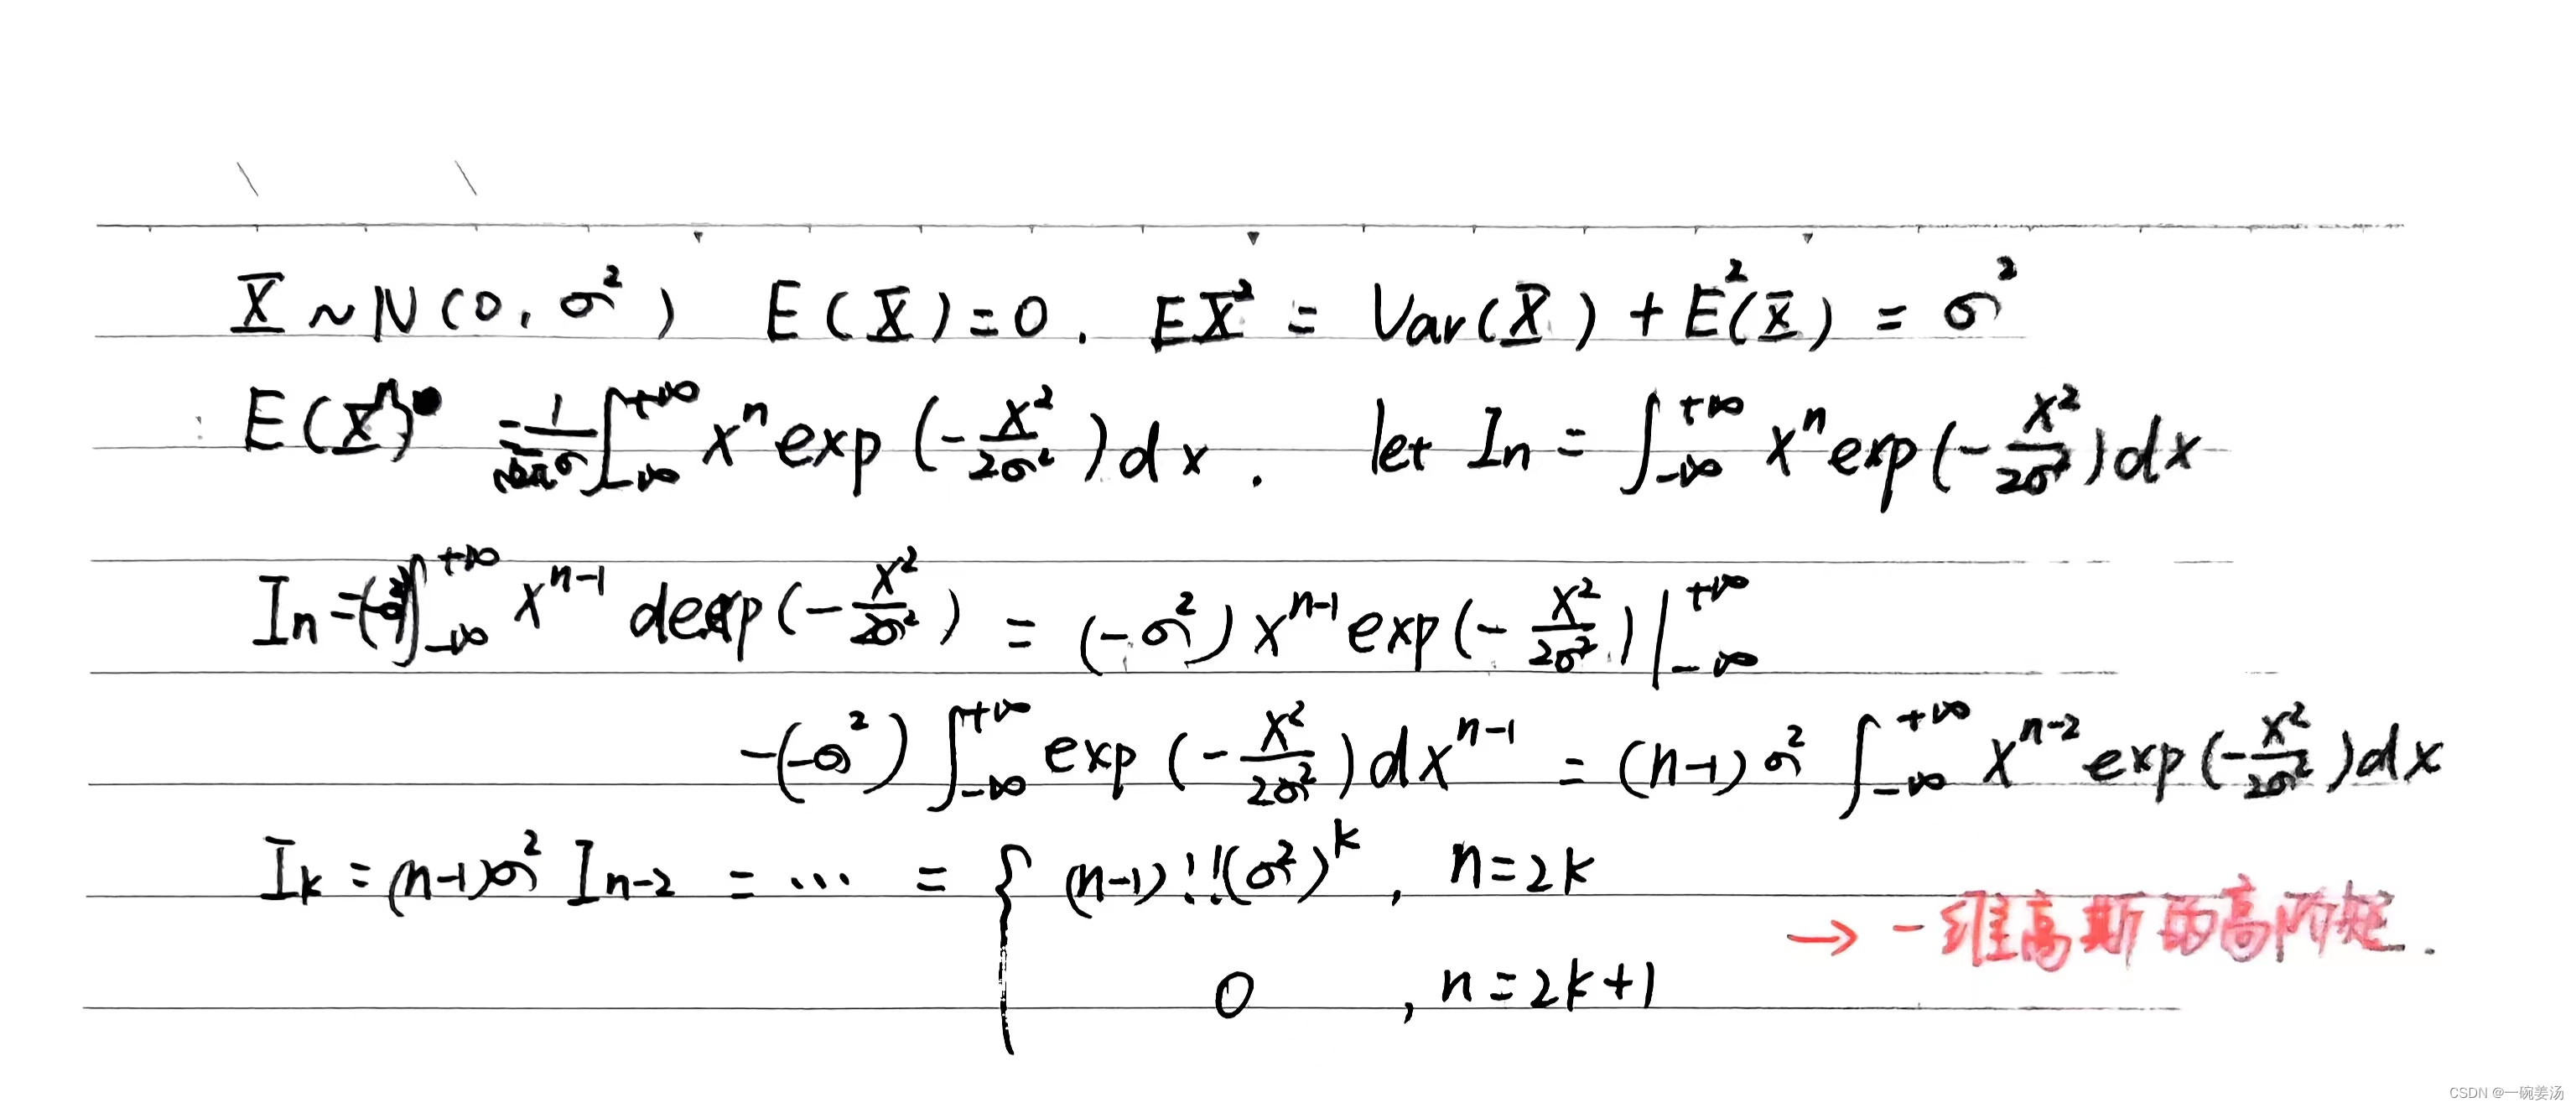 X ~ N(0, σ²) E(X)=0. EX² = Var(X) + E²(X) = σ²
E(Xⁿ) = 1/(√(2π)σ) ∫_{-∞}^{+∞} xⁿ exp(-x²/(2σ²)) dx. let In = ∫_{-∞}^{+∞} xⁿ exp(-x²/(2σ²)) dx
In = (-σ²) ∫_{-∞}^{+∞} x^{n-1} d exp(-x²/(2σ²)) = (-σ²) x^{n-1} exp(-x²/(2σ²)) |_{-∞}^{+∞}
-(-σ²) ∫_{-∞}^{+∞} exp(-x²/(2σ²)) dx^{n-1} = (n-1)σ² ∫_{-∞}^{+∞} x^{n-2} exp(-x²/(2σ²)) dx
I_k = (n-1)σ² I_{n-2} = ⋯ = { (n-1)!!(σ²)^k, n=2k
→ 一维高斯的高阶矩.
0, n=2k+1
CSDN @一碗姜汤